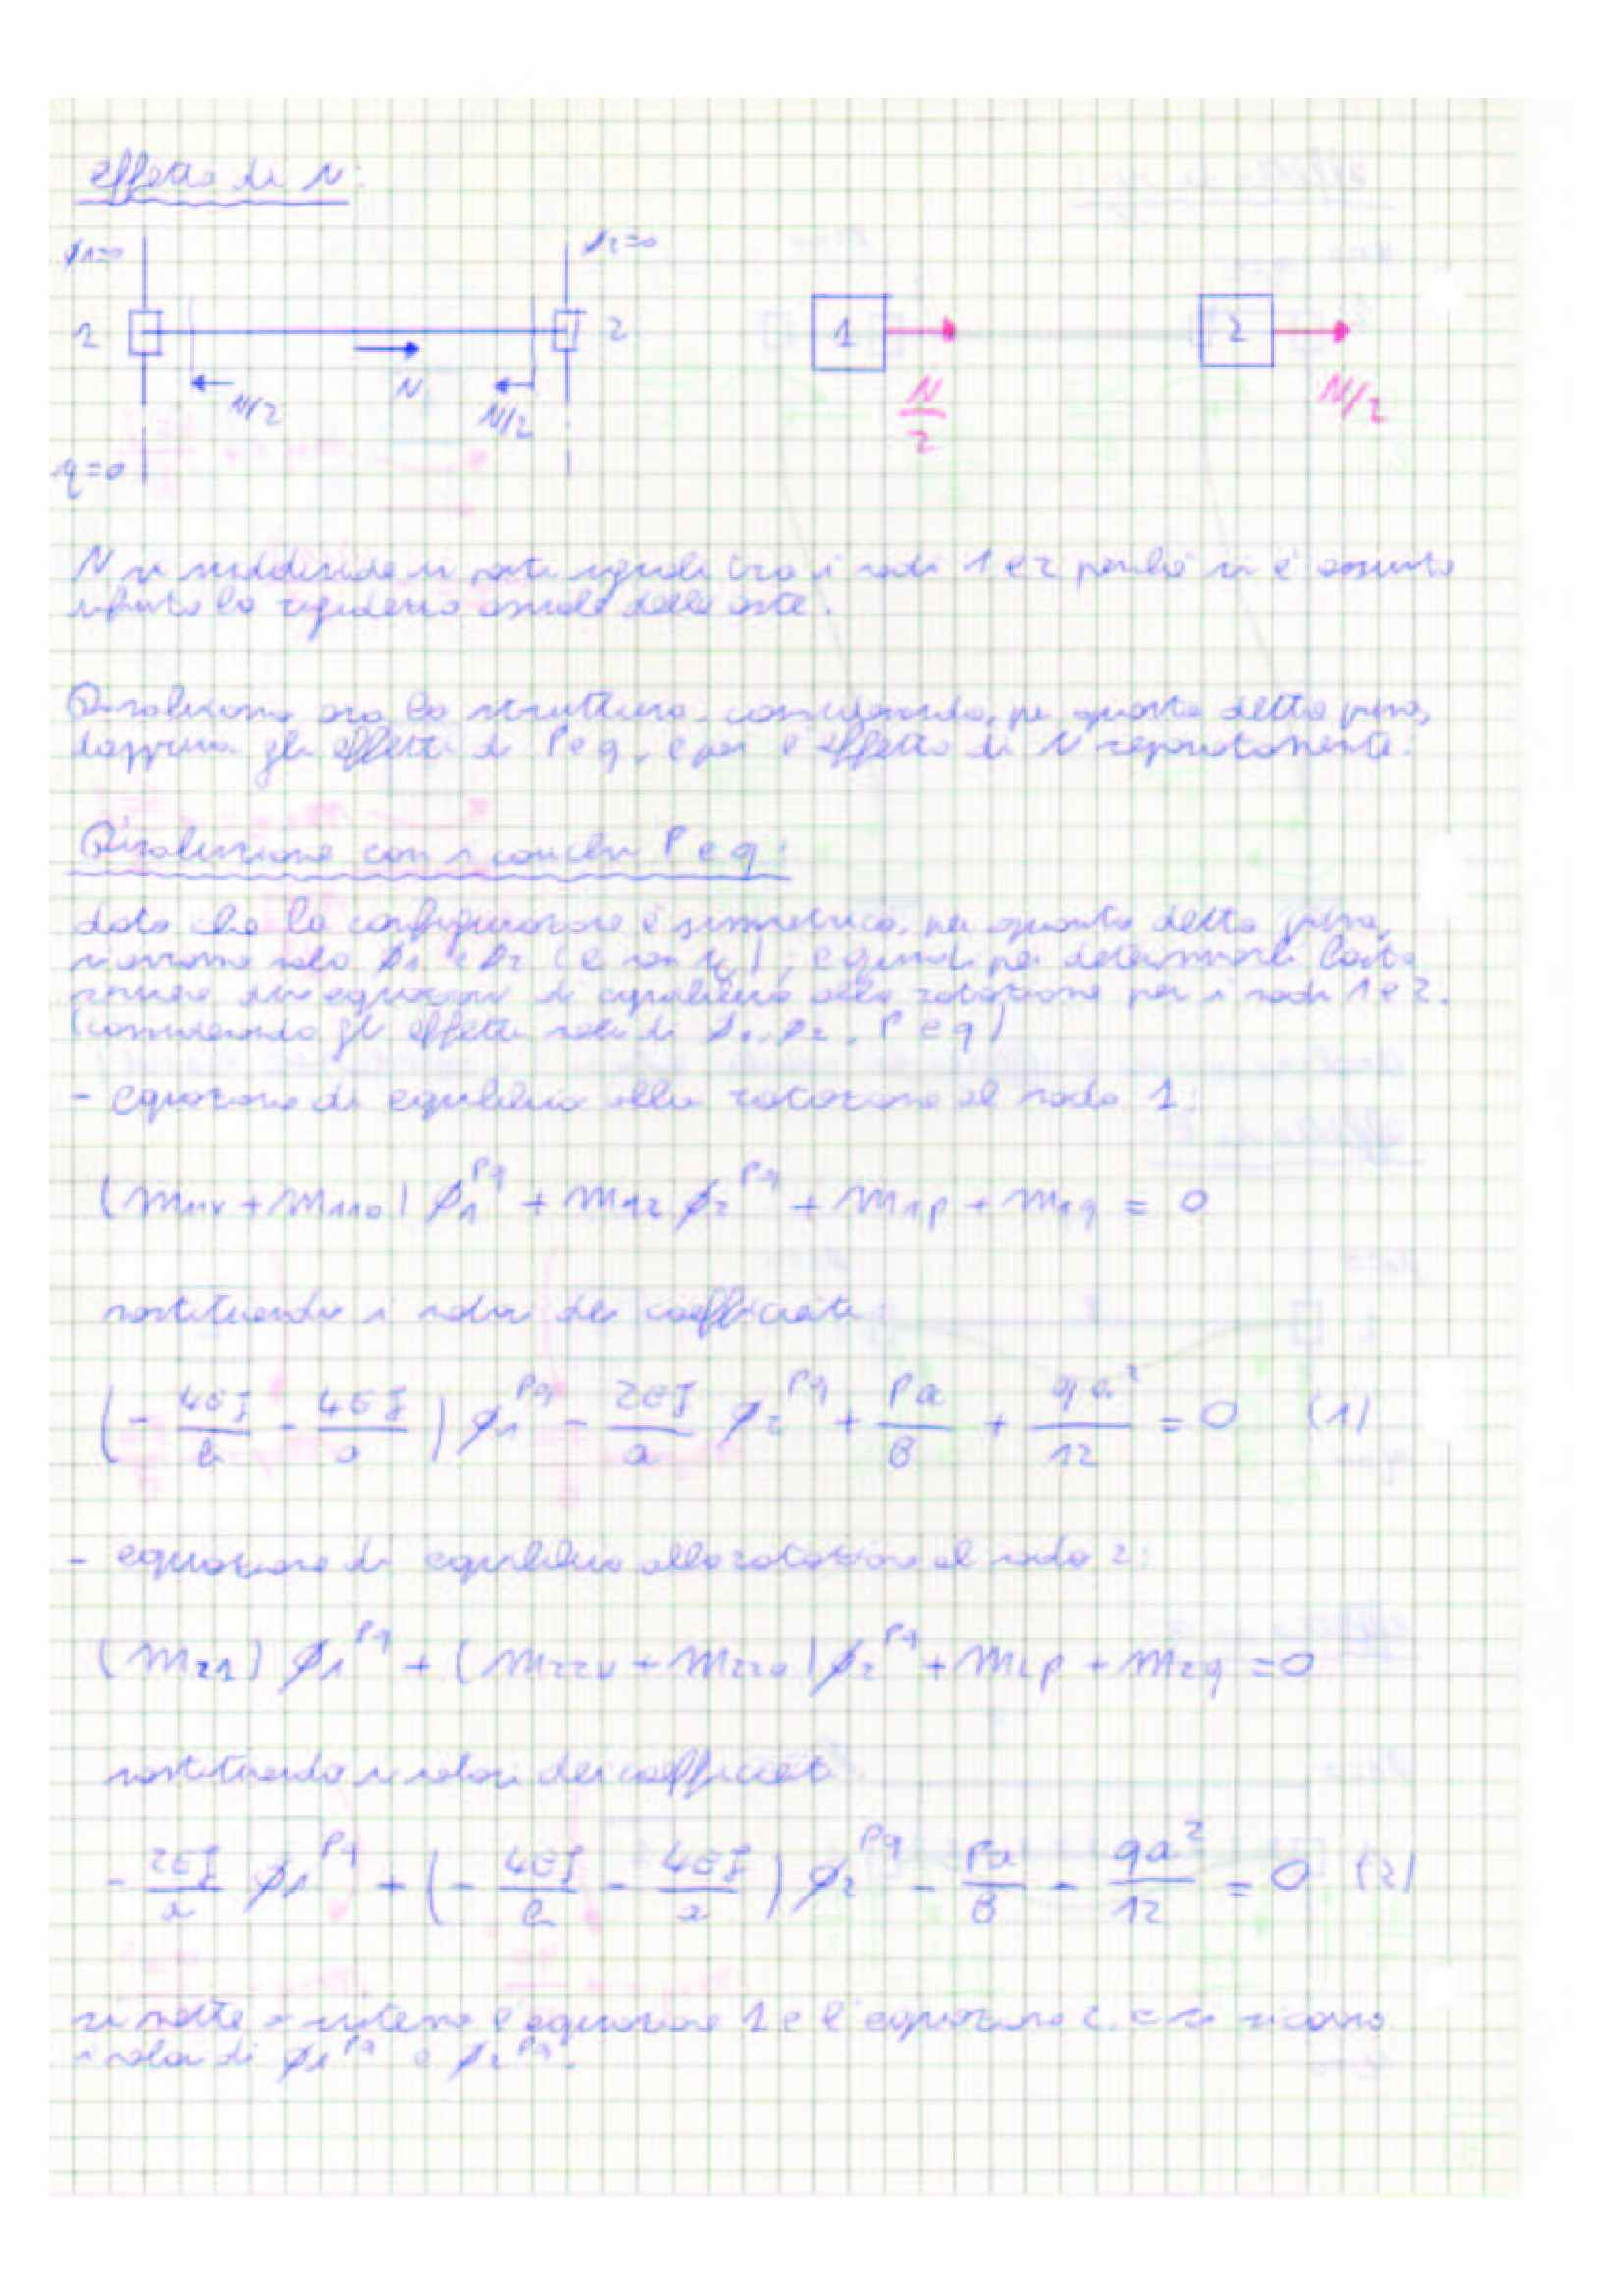 effetto di N:
φ1=0
φ2=0
1
2
N/2
N
N/2
η=0
1
2
N/2
N/2
N si suddivide in parti uguali tra i nodi 1 e 2 perché si è assunta
infinita la rigidezza assiale delle aste.
Risolviamo ora la struttura considerando, per quanto detto prima,
dapprima gli effetti di P e q, e poi l'effetto di N separatamente.
Risoluzione con i carichi P e q:
dato che la configurazione è simmetrica, per quanto detto prima,
solo φ1 e φ2 (e non η), e quindi per determinarli basta
due equazioni di equilibrio alla rotazione per i nodi 1 e 2.
(considerando gli effetti solo di φ1, φ2, P e q)
- equazione di equilibrio alla rotazione al nodo 1:
(m11v + m11o) φ1^Pq + m12 φ2^Pq + m1p + m1q = 0
sostituendo i valori dei coefficienti:
(- 4EJ/h - 4EJ/a) φ1^Pq - 2EJ/a φ2^Pq + Pa/8 + qa²/12 = 0 (1)
- equazione di equilibrio alla rotazione al nodo 2:
(m21) φ1^Pq + (m22v + m22o) φ2^Pq + m2p + m2q = 0
sostituendo i valori dei coefficienti
- 2EJ/a φ1^Pq + (- 4EJ/h - 4EJ/a) φ2^Pq - Pa/8 - qa²/12 = 0 (2)
si mette a sistema l'equazione 1 e l'equazione 2, e si ricavano
i valori di φ1^Pq e φ2^Pq.